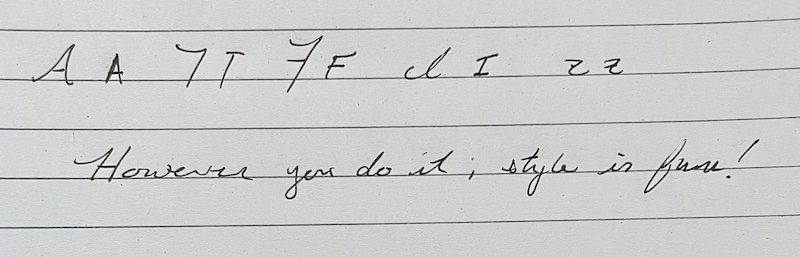 A A T T F F I I z z
However you do it, style is fun!